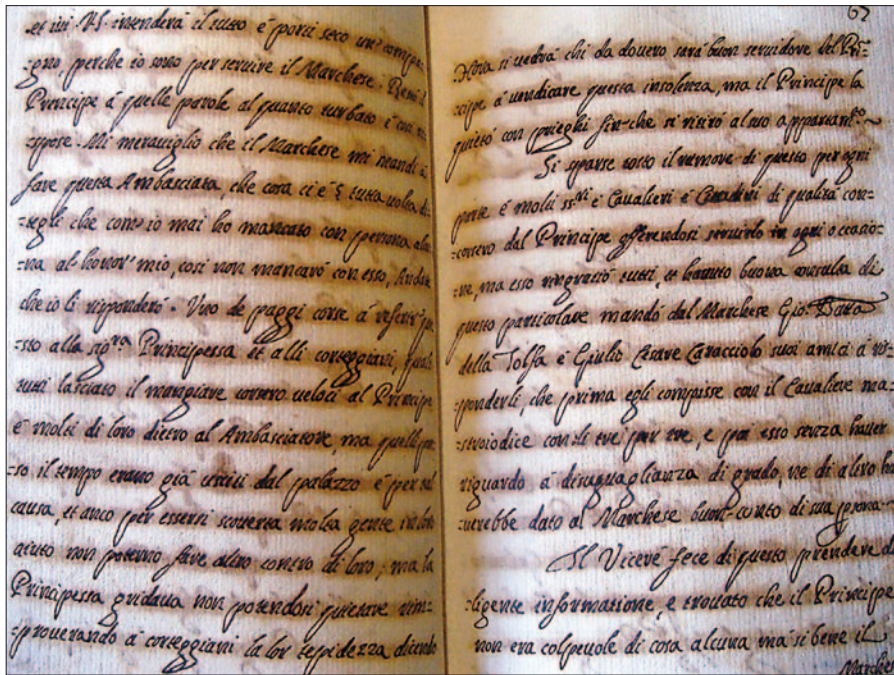 et ivi V.S. intenderà il tutto é porti seco un' compa-
-gno, perche io sono per servire il Marchese. Restò il
Prencipe á quelle parole al quanto turbato é così ri-
-spose. Mi meraviglio che il Marchese mi mandi á
fare questa Ambasciata, che cosa ci é § tutta volta di-
-tegli che com' io mai ho mancato con persona alcu-
-na al honor' mio, cosi non mancaró con esso, Andate
che io li risponderó. Uno de paggi corse á referir' que-
-sto alla sig.ra Principessa et alli corteggiani, quali
tutti lasciato il mangiare corsero veloci al Principe
é molti di loro dietro al Ambasciatore, ma quelli
-so il tempo erano giá usciti dal palazzo é per tal
causa, et anco per essersi scoverta molta gente in loro
aiuto non poterno fare altro contro di loro; ma la
Principessa gridava non potendosi quietare rim-
-proverando á corteggiani la lor tepidezza dicendo
62
Hora si vedrá chi da dovero sará buon servidore del Pri-
-cipe á vendicare questa insolenza, ma il Principe la
quietó con prieghi fin che si ritiró al suo appartam.to
Si sparse tosto il rumore di questo per ogni
parte é molti ss.ri é Cavalieri é Cittadini di qualitá con-
-corsero dal Principe offerendosi servirlo in ogni occasio-
-ne, ma esso ringratió tutti, et havuto buona consulta di
questo particolare mandó dal Marchese Gio: Batta
della Tolfa é Giulio Cesare Caracciolo suoi amici á ris-
-ponderli, che prima egli compisse con il Cavaliere ma
servidice con li tre per tre, e poi esso senza haver
riguardo á disuguaglianza di grado, ne di altro ha
-verebbe dato al Marchese buon conto di sua persona
Il Viceré fece di questo prendere di
-ligente informatione, e trovato che il Principe
non era colpevole di cosa alcuna ma si bene il
Marchese